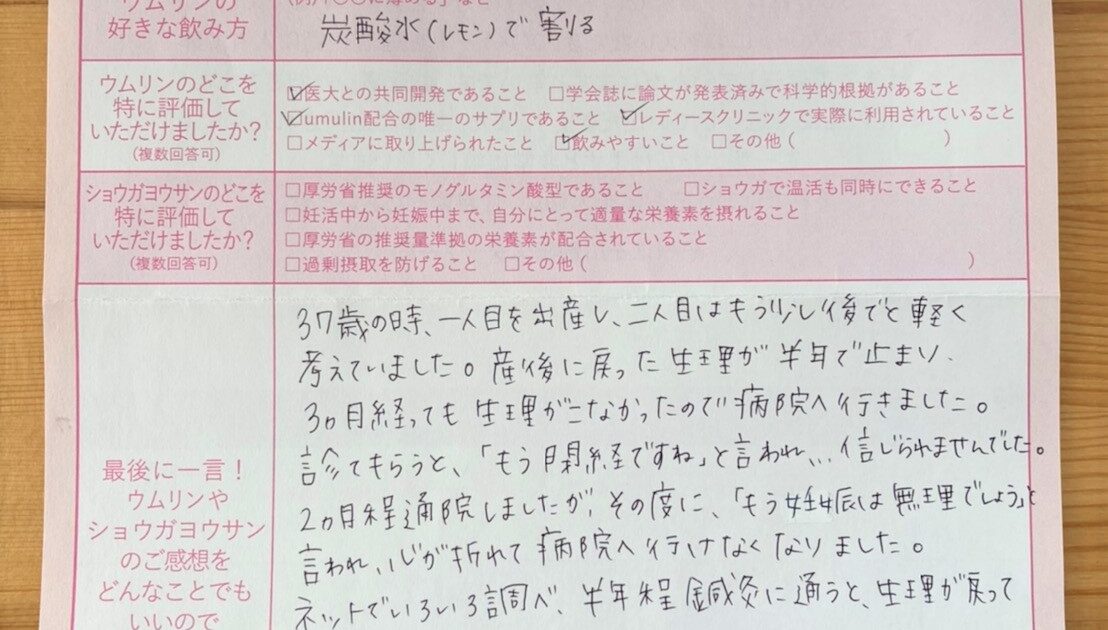 ウムリンの
好きな飲み方
炭酸水(レモン)で割る
ウムリンのどこを
特に評価して
いただけましたか?
(複数回答可)
☑医大との共同開発であること □学会誌に論文が発表済みで科学的根拠があること
☑umulin配合の唯一のサプリであること ☑レディースクリニックで実際に利用されていること
□メディアに取り上げられたこと ☑飲みやすいこと □その他( )
ショウガヨウサンのどこを
特に評価して
いただけましたか?
(複数回答可)
□厚労省推奨のモノグルタミン酸型であること □ショウガで温活も同時にできること
□妊活中から妊娠中まで、自分にとって適量な栄養素を摂れること
□厚労省の推奨量準拠の栄養素が配合されていること
□過剰摂取を防げること □その他( )
最後に一言!
ウムリンや
ショウガヨウサン
のご感想を
どんなことでも
いいので
37歳の時、一人目を出産し、二人目はもう少し後でと軽く
考えていました。産後に戻った生理が半年で止まり、
3ヵ月経っても生理がこなかったので病院へ行きました。
診てもらうと、「もう閉経ですね」と言われ...信じられませんでした。
2ヵ月程通院しましたが、その度に、「もう妊娠は無理でしょう」と
言われ、心が折れて病院へ行けなくなりました。
ネットでいろいろ調べ、半年程鍼灸に通うと、生理が戻って